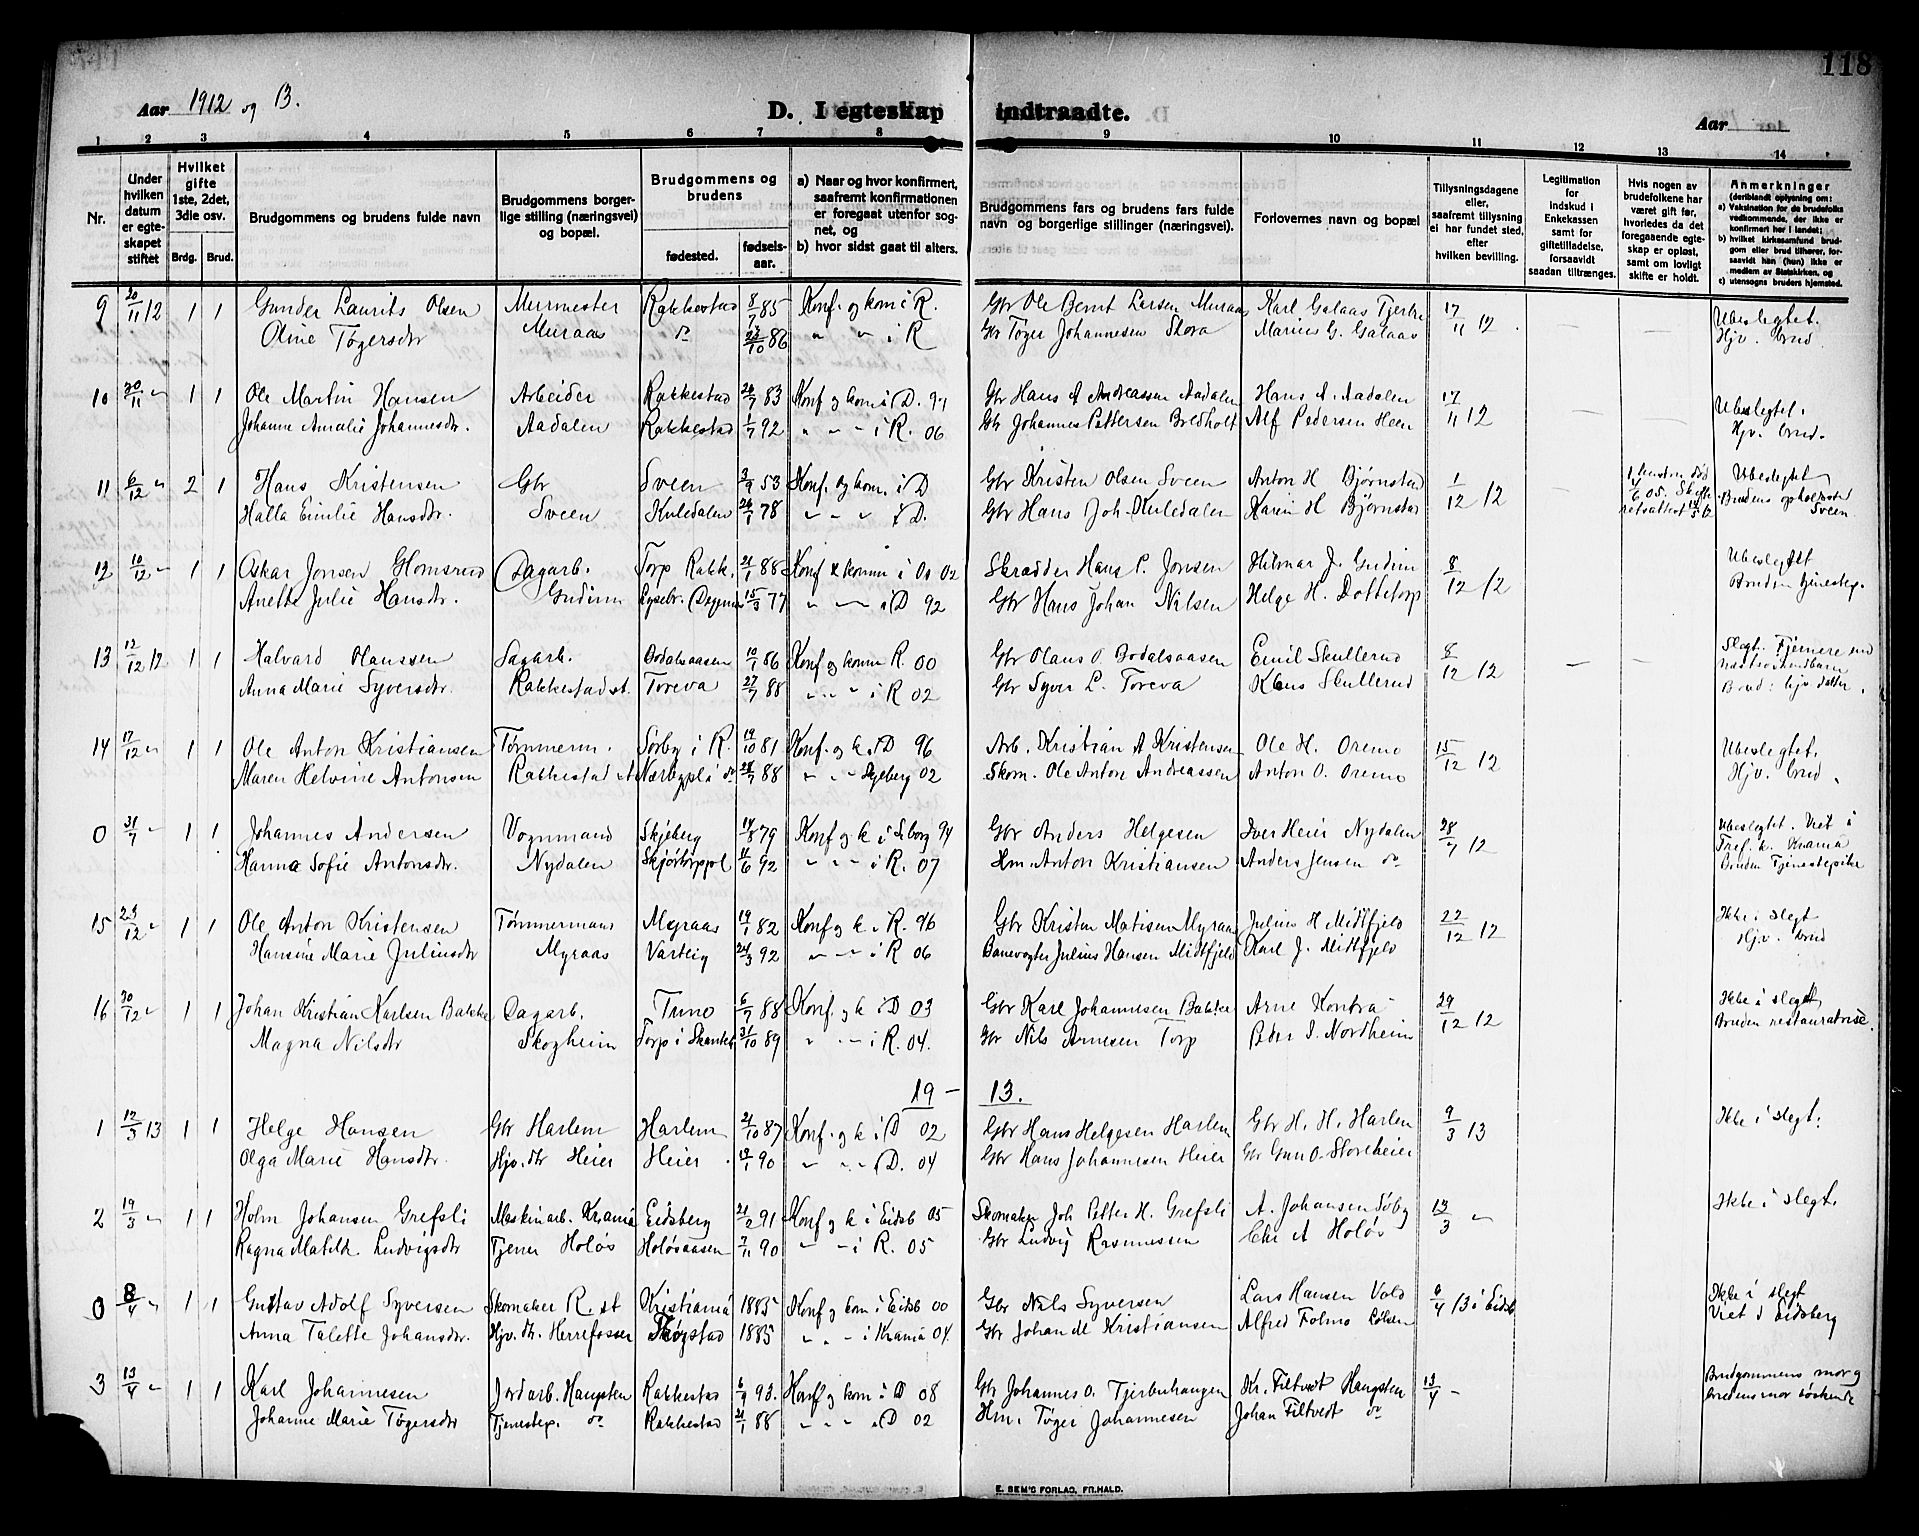 118
Aar 1912 og 13.
D. I egteskap indtraadte.
Aar
1 2 3 4 5 6 7 8 9 10 11 12 13 14
Nr.
Under hvilken datum er egteskapet stiftet
Hvilket gifte 1ste, 2det, 3die osv.
Brdg. Brud.
Brudgommens og brudens fulde navn
Brudgommens borgerlige stilling (næringsvei) og bopæl.
Brudgommens og brudens
fødested. fødselsaar.
a) Naar og hvor konfirmert, saafremt konfirmationen er foregaat utenfor sognet, og
b) hvor sidst gaat til alters.
Brudgommens fars og brudens fars fulde navn og borgerlige stillinger (næringsvei).
Forlovernes navn og bopæl
Tillysningsdagene eller, saafremt tillysning ei har fundet sted, efter hvilken bevilling.
Legitimation for indskud i Enkekassen samt for giftetilladelse, forsaavidt saadan tiltrænges.
Hvis nogen av brudefolkene har været gift før, hvorledes da det foregaaende egteskap er opløst, samt om lovligt skifte er holdt.
Anmerkninger (deriblandt oplysning om:
a) Vaksination for de brudefolks vedkommende, der ikke er konfirmert her i landet;
b) hvilket kirkesamfund brudgom eller brud tilhører, forsaavidt han (hun) ikke er medlem av Statskirken, og
c) utensogns bruders hjemsted.
9 20/11 12 1 1 Gunder Laurits Olsen Murmester Rakkestad 8/7 85 Konf. og kom i R. Gbr Ole Bernt Larsen Muraas Karl Galaas 17/11 12 Ubeslegtet.
Oline Tøgersdtr Muraas do /10 86 " " i R Gbr Tøger Johannesen Skora Marius G. Galaas Hjv. brud
10 30/11 " 1 1 Ole Martin Hansen Arbeider Rakkestad 26/7 83 Konf og kom i D. Gbr Hans A Andreassen Aadalen Hans A. Aadalen 17/11 12 Ubeslegtet.
Johanne Amalie Johannesdtr. Aadalen Rakkestad 1/7 92 " " " i R. 06 Gbr Johannes Pettersen Bredholt Alf Pedersen Heen Hjv. brud.
11 6/12 " 2 1 Hans Kristensen Gbr Sveen 3/9 53 Konf. og kom. i D Gbr Kristen Olsen Sveen Anton H Bjørnstad 1/12 12 Ubeslegtet
Halla Emilie Hansdtr. Sveen Kuledalen 26/1 78 " " " i D. Gbr Hans Joh. Kuledalen Karin H Bjørnstad Brudens opholdssted Sveen
12 10/12 " 1 1 Oskar Jonsen Glomsrud Dagarb. Torp Rakk. 21/1 88 Konf & komm i 02 Skrædder Hans P. Jonsen Hilmar J. Gudim 8/12 12 Ubeslegtet
Anette Julie Hansdtr. Gudim 15/3 77 " " i D 92 Gbr Hans Johan Nilsen Helge H. Dottetorp Bruden tjenestep.
13 12/12 12 1 1 Halvard Olanssen Sagarb. Bodalsaasen 10/1 86 Konf og kom R. 00 Gbr Olaus O. Bodalsaasen Emil Skullerud 8/12 12 Slegt.
Anna Marie Syversdtr. Rakkestad st. Toreva 27/7 88 " " " i R 02 Gbr Syver L. Toreva Klaus Skullerud Brud: hjv. datter.
14 17/12 " 1 1 Ole Anton Kristiansen Tømmerm. Sørby i R. 19/10 81 Konf. og k. i D 96 Arb. Kristian A Kristensen Ole H. Oremo 15/12 12 Ubeslegtet.
Maren Helvine Antonsen Rakkestad st 28/7 88 " " " Skjeberg 02 Skom. Ole Anton Andreassen Anton O. Oremo Hjv. brud.
0 31/7 " 1 1 Johannes Andersen Vognmand Skjeberg 14/8 79 Konf og k i S.borg 94 Gbr Anders Helgesen Iver Heier Nydalen 28/7 12 Ubeslegtet. Viet i
Hanna Sofie Antonsdtr. Nydalen Skjørtorppl 11/6 92 " " " i R. 07 Hm. Anton Kristiansen Anders Jensen do Tref. k. Krania
Bruden Tjenestepike
15 23/12 " 1 1 Ole Anton Kristensen Tømmermand Myraas 19/1 82 Konf og k. i R. 96 Gbr Kristen Matisen Myraas Julius H Midtfjeld 22/12 12 Ikke i slegt
Hansine Marie Juliusdtr Myraas Varteig 24/3 92 " " " i R 06 Banevogter Julius Hansen Midtfjeld Karl J. Midtfjeld Hjv. brud
16 30/12 " 1 1 Johan Kristian Karlsen Bakke Dagarb. Tuno 6/7 88 Konf. og k i D 03 Gbr Karl Johannesen Bakke Arne Kontra 29/12 12 Ikke i slegt
Magna Nilsdtr Skogheim Torp i 31/10 89 " " " i R. 04. Gbr Nils Arnesen Torp Peder S. Nordheim Bruden restauratrise.
19 — 13.
1 12/3 13 1 1 Helge Hansen Gbr Harlem Harlem 21/10 87 Konf. og k i D 02 Gbr Hans Helgesen Harlem Gbr H. H. Harlem 9/3 13 Ikke i slegt.
Olga Marie Hansdtr. Hjv. dtr Heier Heier 18/1 90 " " " i D. 04 Gbr Hans Johannesen Heier Gbr Gun O. Storeheier
2 19/3 " 1 1 Holm Johansen Grefsli Maskinarb. Krania Eidsberg 21/2 91 Konf og k i Eidsb 05 Skomaker Joh Petter H. Grefsli A. Johansen Søby 13/3 " Ikke i slegt.
Ragna Matild. Ludvigsdtr Tjener Holøs Holøsaasen 7/11 90 " " i R. 05 Gbr Ludvig Rasmussen Chr A Holøs
0 8/4 " 1 1 Gustav Adolf Syversen Skomaker R. st Kristiania 1885 Konf og kom i Eidsb 00 Gbr Nils Syversen Lars Hansen Vold 6/4 13 i Eidsb Ikke i slegt
Anna Talette Johansdtr. Hjv. dtr. Herrefosser Skøgstad 1885 " " " i Krania 04. Gbr Johan Kristiansen Alfred Folmo Viet i Eidsberg
3 13/4 " 1 1 Karl Johannesen Jordarb. Haugsten Rakkestad 6/9 93. Konf og kom i D 08 Gbr Johannes O. Tjerbuhaugen Kr. Filtvedt Haugsten 13/4 – Brudgommens mor og
Johanne Marie Tøgersdtr Tjenestep. do Rakkestad 21/1 88 " " " i D 02 Hm. Tøger Johannesen Johan Filtvedt do brudens mor søskende
E. SEM'S FORLAG, FR.HALD.